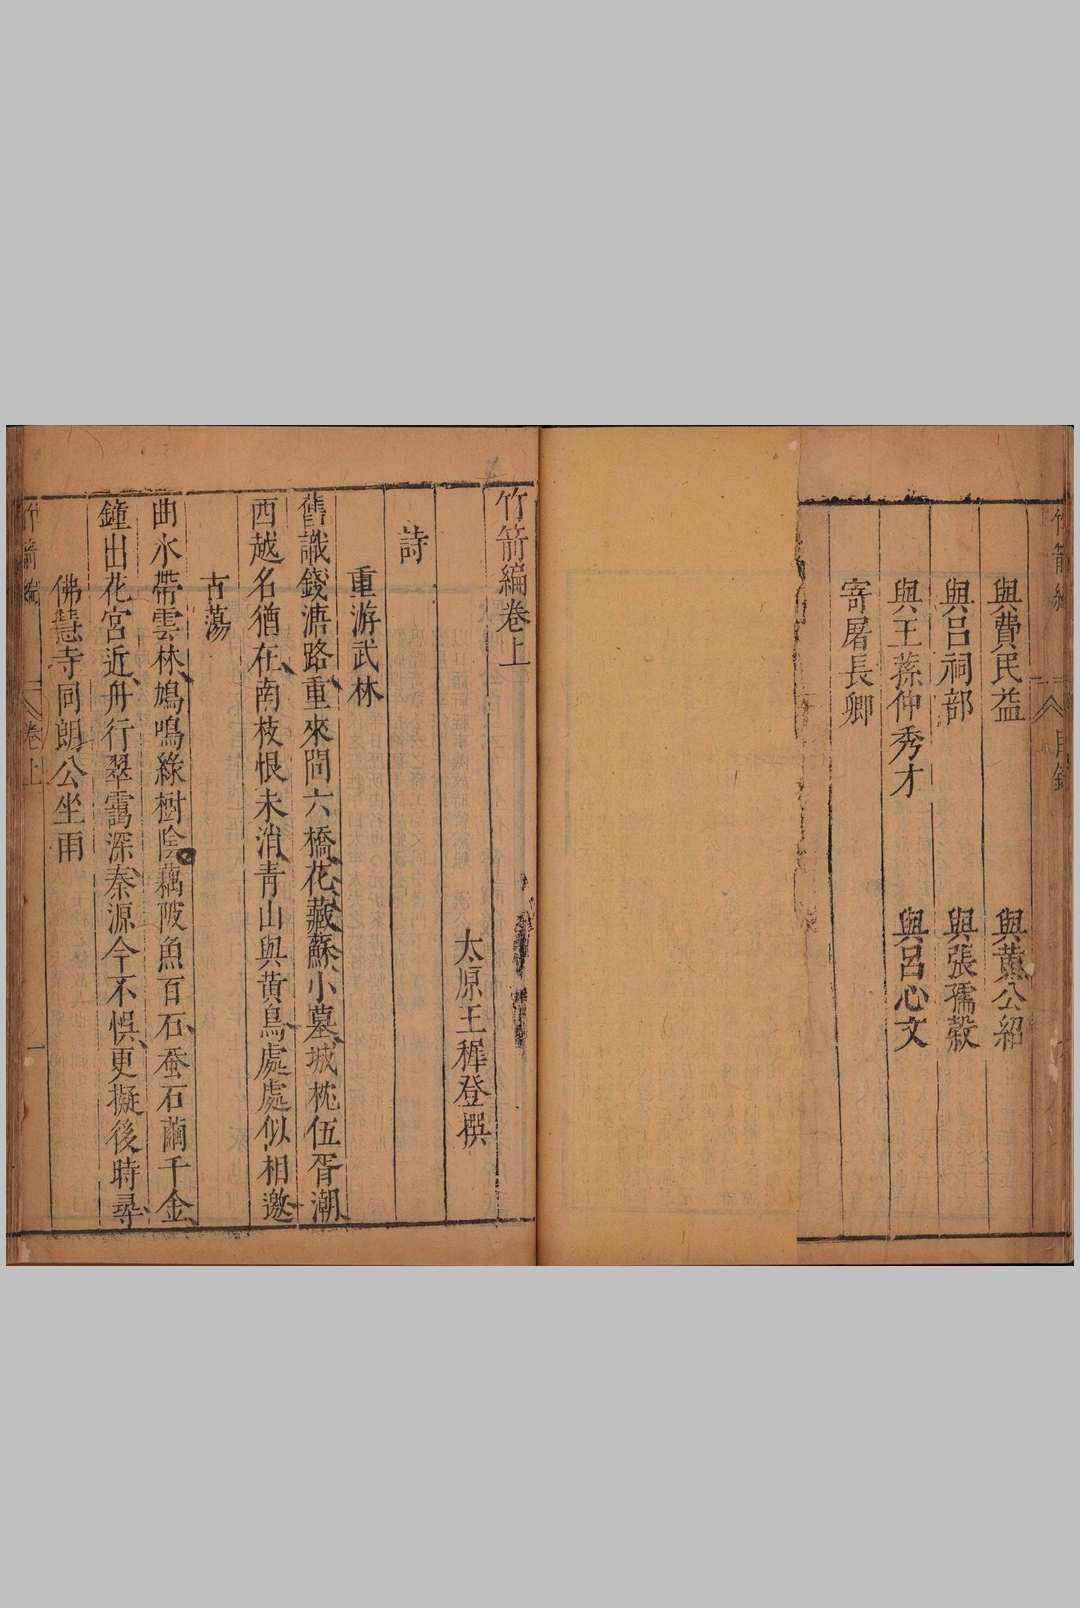 竹箭編 目錄
與費民益 與黄公紹
與呂祠部 與張孺縠
與王蓀仲秀才 與呂心文
寄屠長卿
竹箭編卷上
太原王穉登撰
詩
重游武林
舊識錢塘路重來問六橋花藏蘇小墓城枕伍胥潮
西越名猶在南枝恨未消青山與黄鳥處處似相邀
古蕩
曲水帶雲林鳩鳴綠樹陰藕陂魚百石蚕石繭千金
鐘出花宮近舟行翠靄深秦源今不悞更擬後時尋
佛慧寺同朗公坐雨
竹箭編 卷上 一